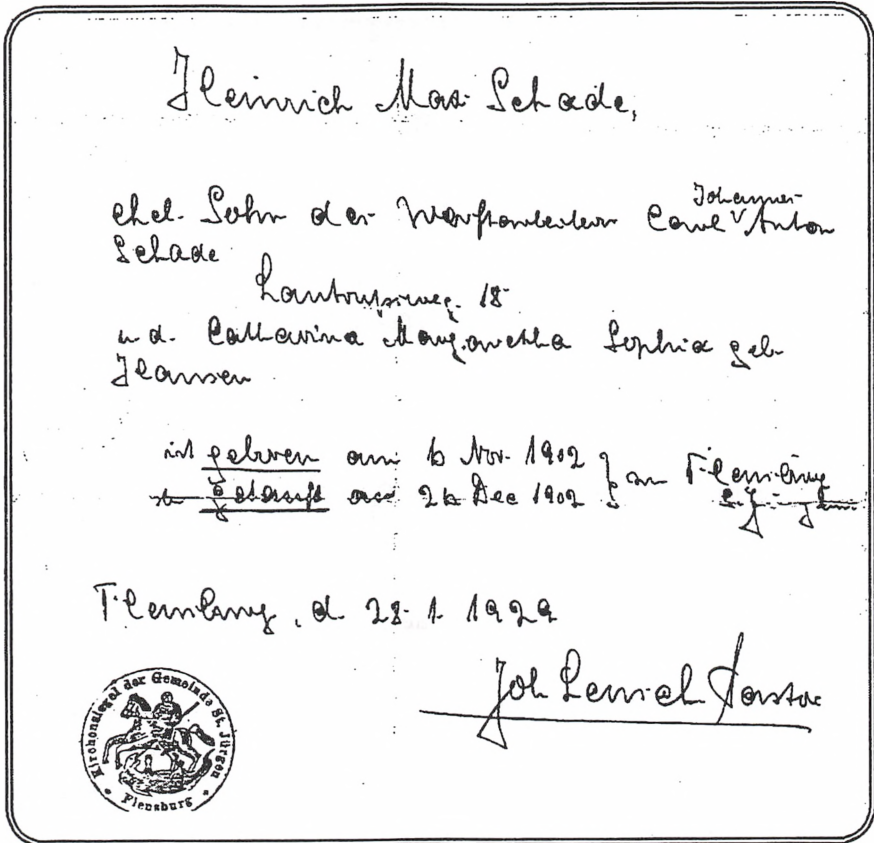 Heinrich Max Schade,
ehel. Sohn des Werftarbeiters Carl Johannes Anton
Schade
18
u. d. Catharina Margaretha Sophia geb.
Hansen
ist geboren am 6 Nov. 1902 } in Flensburg
u. getauft am 26 Dec 1902
Flensburg, d. 28. 1. 1929
Joh Pastor
Kirchensiegel der Gemeinde St. Jürgen
Flensburg